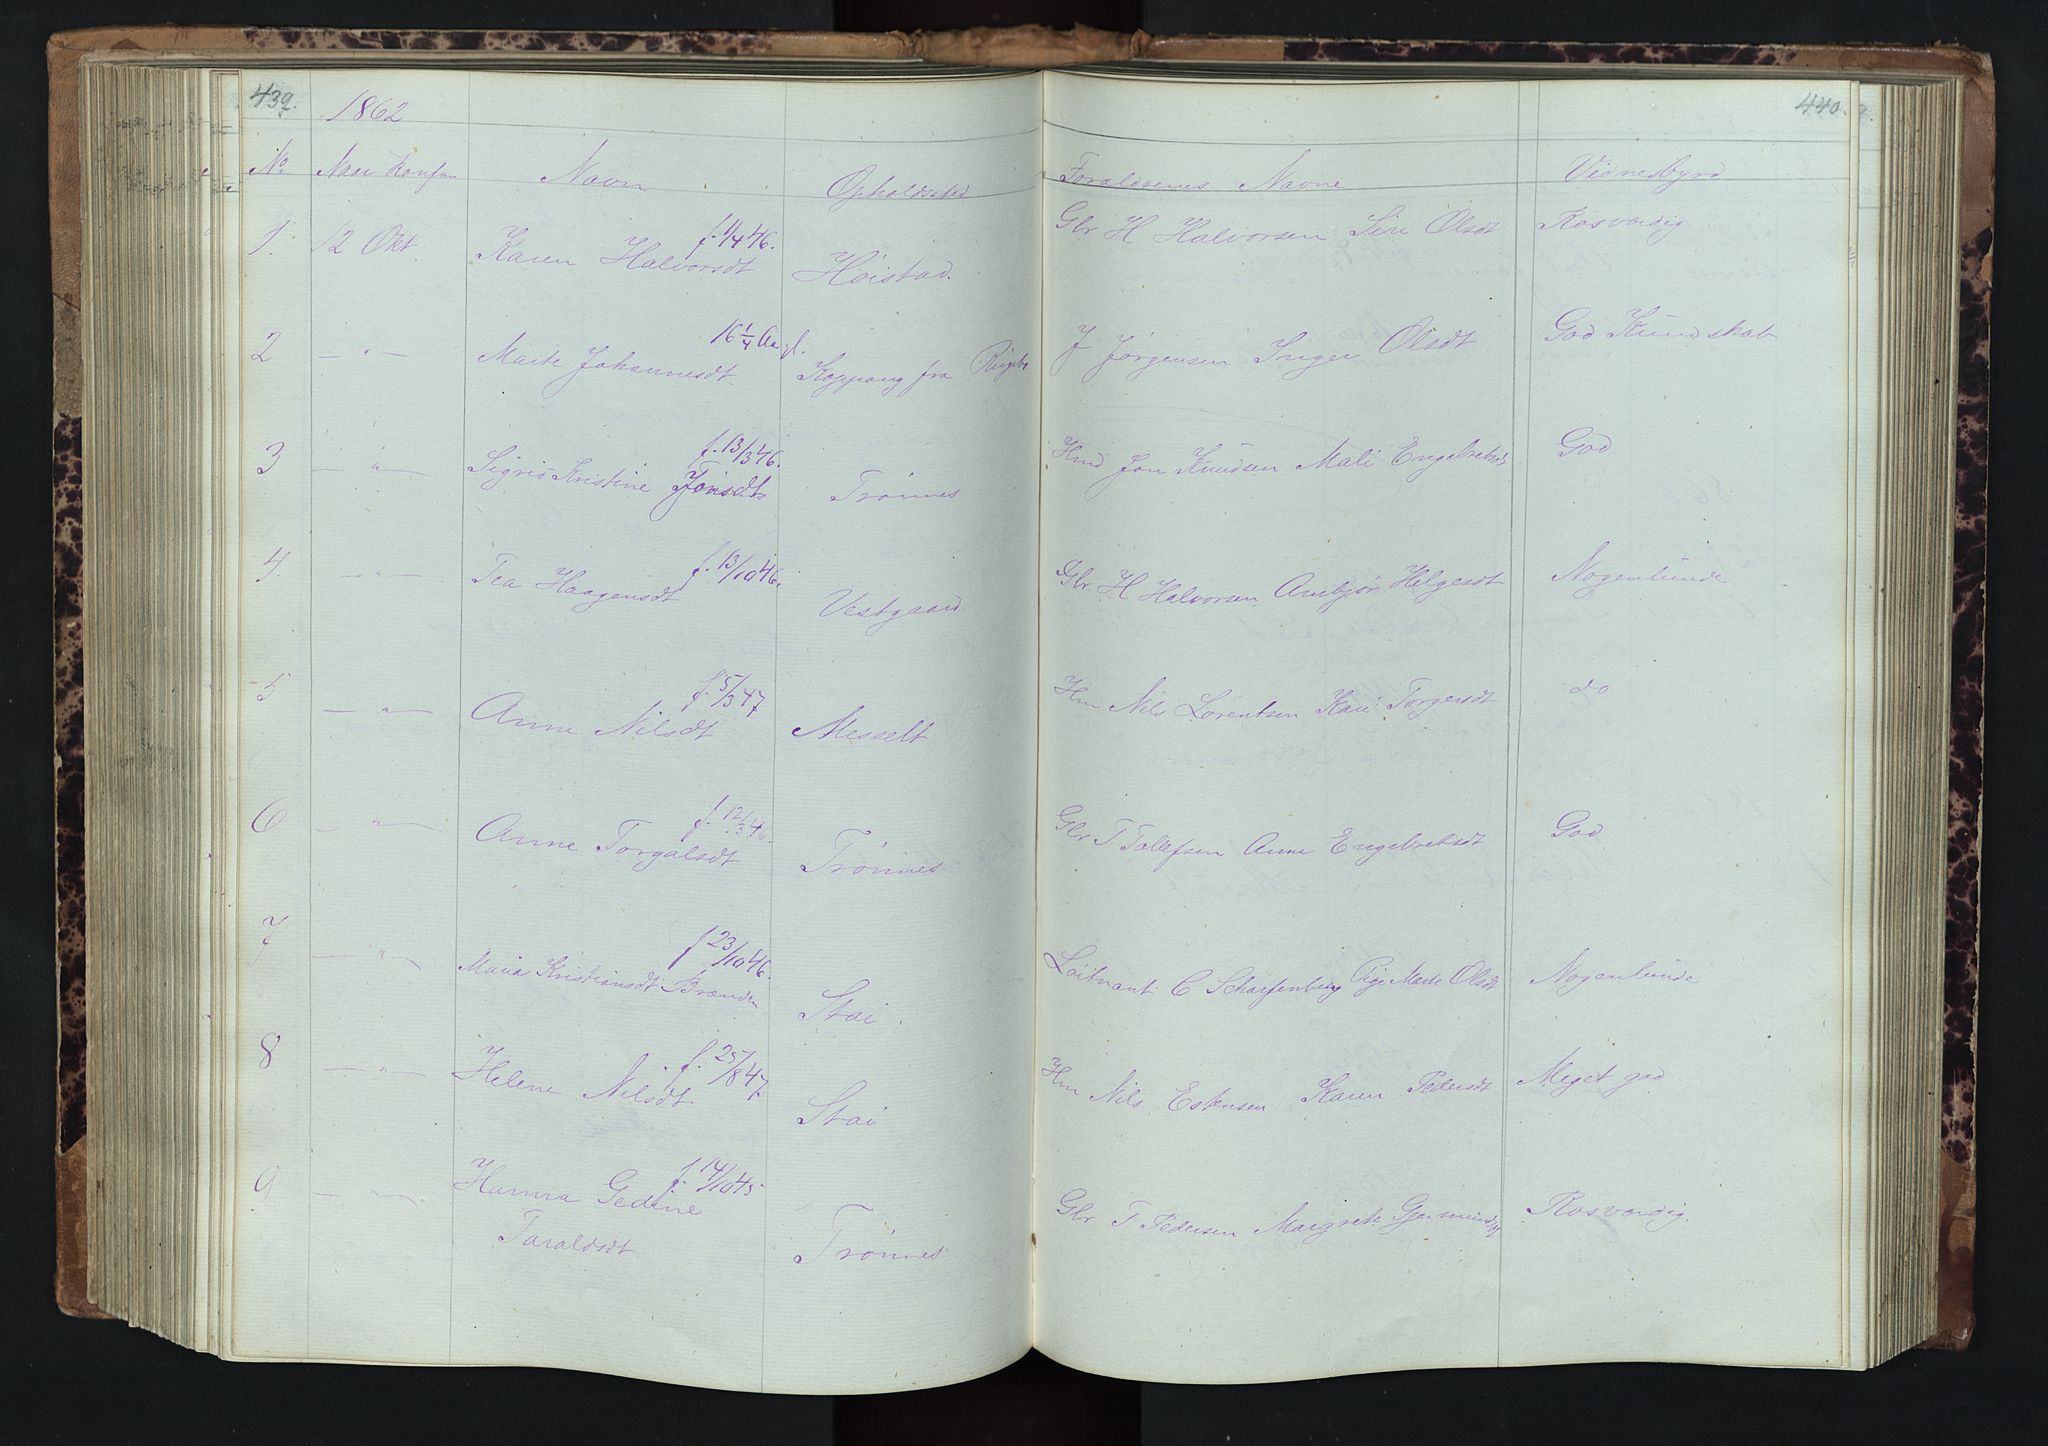 439.
440.
1862
No Naar Konfm Navn Opholdssted Foraldrenes Navne Vidnesbyrd
1. 12 Okt. Karen Halvorsdt f. 1/4 46. Høistad. Glr H Halvorsen Siri Olsdt Rosværdig
2 — " — Marte Johannesdt. 16 1/4 Aa gl. Koppang fra Ringebo J Jørgensen Inger Olsdt God Kundskab
3 — " — Sigrid Kristine Jonsdt f. 13/3 46. Trønnes Hmd Jon Knudsen Mali Engebretsdt God
4. — " — Tea Haagensdt f. 13/10 46. Vestgaard Glr H Halvorsen Ambjør Helgesdt Nogenlunde
5 — " — Anne Nilsdt f. 5/3 47 Messelt Hm Nils Lorentsen Kari Torgersdt do
6 — " — Anne Torgalsdt f. 12/3 46. Trønnes Glr T Tollefsen Anne Engebretsdt God
7 — " — Maria Kristiansdt Brænden f 23/10 46. Stai. Løitnant C Scharfenberg Pige Marte Olsdt Nogenlunde
8 — " — Helene Nilsdt f. 25/8 47 Stai Hm Nils Estensen Karen Pedersdt Meget god
9 — " — Hanna Gedine f. 14/10 45 Glr T Pedersen Margrete Rosværdig.
Taraldsdt Trønnes